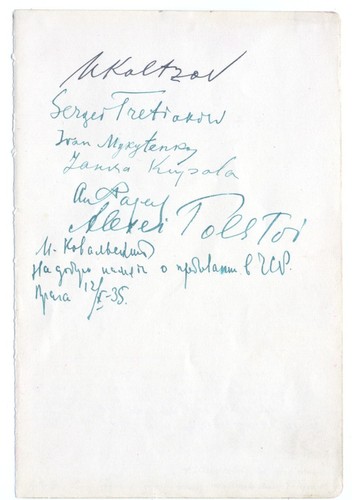 MKoltzov
Sergei Tretiakow
Ivan Mykytenko
Janka Kupala
Alexei Tolstoi
На добрую память о пребывании в ЧСР.
Прага 12/X-35.